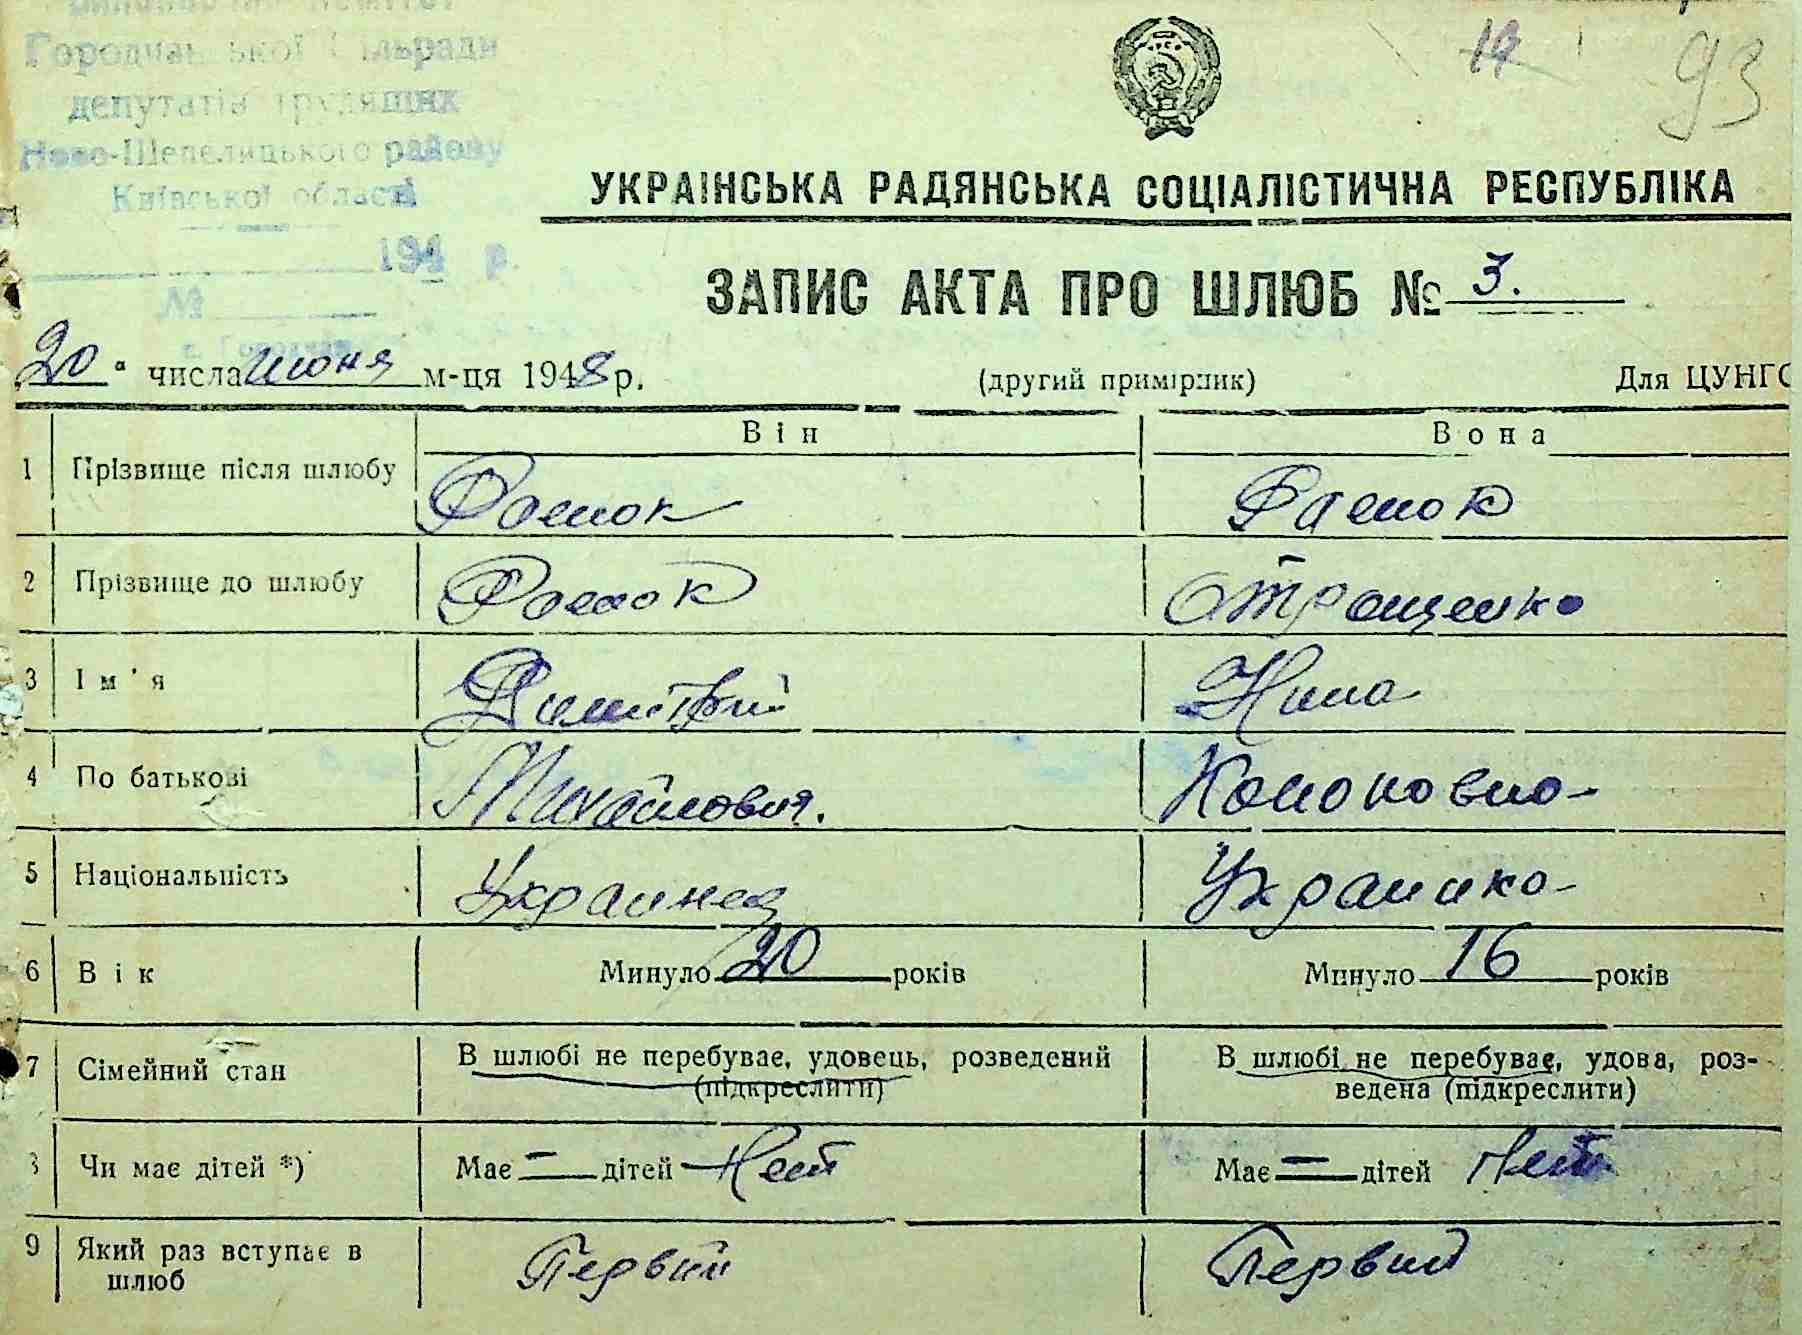 Городчанської сільради
депутатів трудящих
Ново-Шепелицького району
Київської області
194 р.
№
19
93
УКРАЇНСЬКА РАДЯНСЬКА СОЦІАЛІСТИЧНА РЕСПУБЛІКА
ЗАПИС АКТА ПРО ШЛЮБ № 3.
20 " числа июня м-ця 1948 р. (другий примірник) Для ЦУНГО
Він Вона
1 Прізвище після шлюбу
2 Прізвище до шлюбу
3 Ім'я Димитрий Нина
4 По батькові Михайлович. Кононовна
5 Національність Украинец Украинка
6 Вік Минуло 20 років Минуло 16 років
7 Сімейний стан В шлюбі не перебуває, удовець, розведений (підкреслити) В шлюбі не перебуває, удова, роз-
ведена (підкреслити)
8 Чи має дітей *) Має — дітей Нет Має — дітей Нет
9 Який раз вступає в шлюб Первий Первий